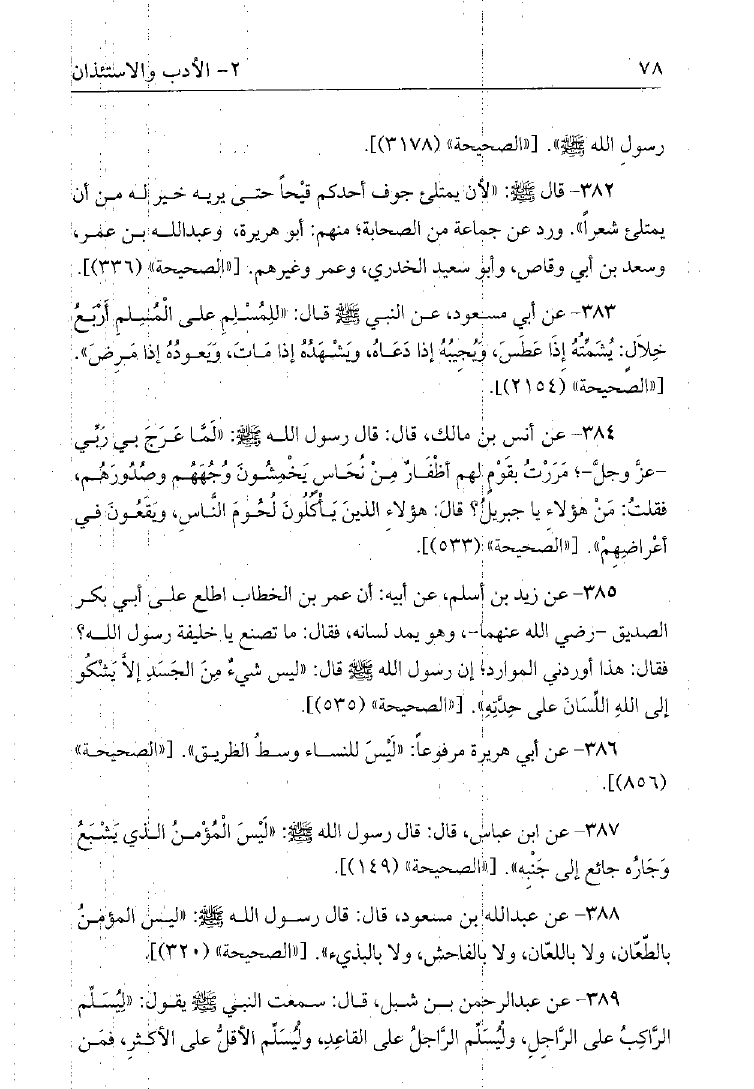 ٧٨
٢- الأدب والاستئذان
رسول الله ﷺ». [«الصحيحة» (٣١٧٨)].
٣٨٢- قال ﷺ: «لأن يمتلئ جوف أحدكم قيْحاً حتى يريه خير له من أن
يمتلئ شعراً». ورد عن جماعة من الصحابة؛ منهم: أبو هريرة، وعبدالله بن عمر،
وسعد بن أبي وقاص، وأبو سعيد الخدري، وعمر وغيرهم. [«الصحيحة» (٣٣٦)].
٣٨٣- عن أبي مسعود، عن النبي ﷺ قال: «للمُسْلِمِ على الْمُسْلِمِ أَرْبَعُ
خِلالٍ: يُشَمِّتُهُ إذَا عَطَسَ، وَيُجِيبُهُ إذا دَعَاه، ويَشْهَدُهُ إذا مَاتَ، وَيَعودُهُ إذا مَرِضَ».
[«الصحيحة» (٢١٥٤)].
٣٨٤- عن أنس بن مالك، قال: قال رسول الله ﷺ: «لَمَّا عَرَجَ بي رَبِّي
-عزَّ وجلَّ-؛ مَرَرْتُ بقَوْمٍ لهم أظْفَارٌ مِنْ نُحَاسٍ يَخْمِشُونَ وُجُهَهُم وصُدُورَهُم،
فقلتُ: مَنْ هؤلاءِ يا جبريلُ؟ قالَ: هؤلاءِ الذينَ يَأْكُلُونَ لُحُومَ النَّاسِ، ويَقَعُونَ في
أعْراضِهِمْ». [«الصحيحة» (٥٣٣)].
٣٨٥- عن زيد بن أسلم، عن أبيه: أن عمر بن الخطاب اطلع على أبي بكر
الصديق -رضي الله عنهما-، وهو يمد لسانه، فقال: ما تصنع يا خليفة رسول الله؟
فقال: هذا أوردني الموارد؛ إن رسول الله ﷺ قال: «ليس شيءٌ مِنَ الجَسَدِ إلاَّ يَشْكُو
إلى اللهِ اللِّسَانَ على حِدَّتِهِ». [«الصحيحة» (٥٣٥)].
٣٨٦- عن أبي هريرة مرفوعاً: «لَيْسَ للنساء وسطُ الطريق». [«الصحيحة»
(٨٥٦)].
٣٨٧- عن ابن عباس، قال: قال رسول الله ﷺ: «لَيْسَ الْمُؤْمنُ الذي يَشْبَعُ
وَجَارُه جائع إلى جَنْبِه». [«الصحيحة» (١٤٩)].
٣٨٨- عن عبدالله بن مسعود، قال: قال رسول الله ﷺ: «ليس المؤمنُ
بالطّعّان، ولا باللعّان، ولا بالفاحش، ولا بالبذيء». [«الصحيحة» (٣٢٠)].
٣٨٩- عن عبدالرحمن بن شبل، قال: سمعت النبي ﷺ يقول: «لِيُسَلِّم
الرَّاكِبُ على الرَّاجِلِ، ولْيُسَلِّم الرَّاجلُ على القَاعِدِ، ولْيُسَلِّم الأقلُّ على الأكثرِ، فمَن